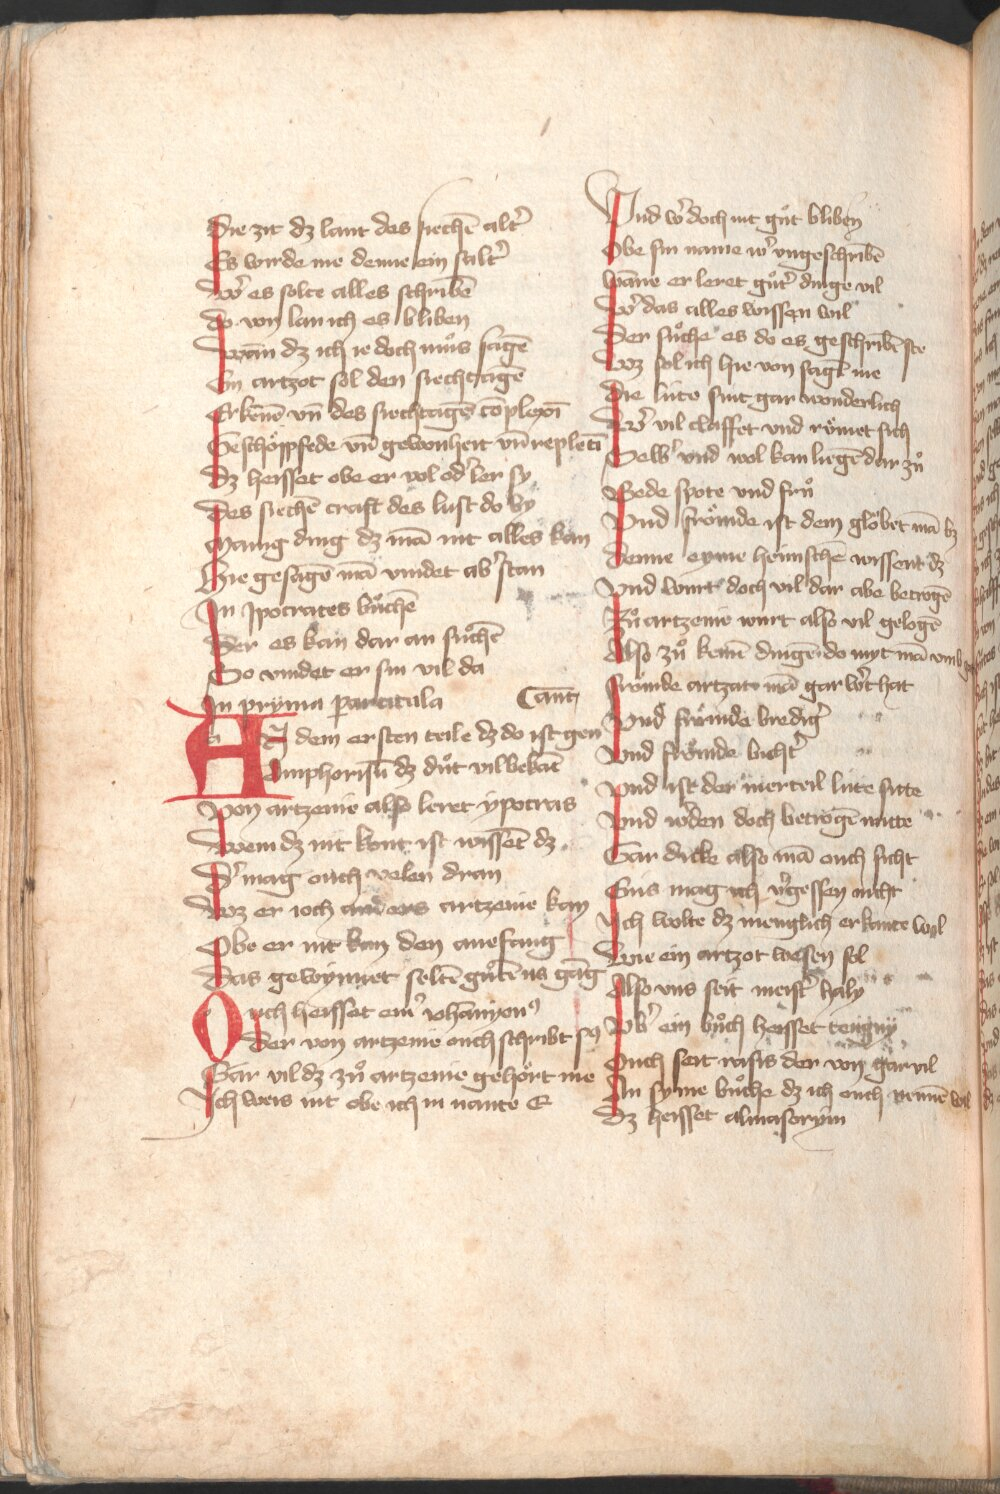 Die zit dz lant des siechē altˀ
Es wurde me denne ein saltˀ
Wˀ es solte alles schribē
Do von lan ich es bliben
Wañ dz ich ie doch muͦs sagē
Ein artzot sol den siechtagē
Erkenē vñ des siechtagē cōplexiō
Geschoͤppfede vñ gewonheit vñ repletiō
Dz heisset obe er vol odˀ ler sy
Des siechē craft des lust do by
Manig ding dz mā nit alles kan
Hie gesagē mā vindet abˀ stan
In Ipocrates buͦchē
Der es kan dar an suͦchē
So vindet er sin vil da
In pryma particula
Cantˀ
AN dem ersten teile dz do ist gen
Amphorisū dz duͦt vil bekāt
Von artzenie also leret ypocras
Wem dz nit kont ist wissēt dz
Dˀ mag ouch velen dran
Wz er joch anders artzenie kan
Obe er nit kan den anefang
Das gewynnet seltē guͦtē us gāg
Ouch heisset einˀ Johāniciꝰ
Der von artzenie ouch schribt sꝰ
Gar vil dz zuͦ artzenie gehoͤrt me
Ich weis nit obe ich in nante E
Und wˀ doch nit guͦt bliben
Obe sin name wˀ ungeschribē
Wāne er leret guͦtˀ dinge vil
Wˀ das alles wissen wil
Der suͦche es do es geschribē ste
Wz sol ich hie von sagē me
Die lüte sint gar wonderlich
Wˀ vil claffet und ruͤmet sich
Selbˀ und wol kan liegē dar zuͦ
Bede spote und fruͦ
Und froͤmde ist dem gloͤbet mā bz
Denne eyme heimschē wissent dz
Und wurt doch vil dar abe betrogē
Zuͦ artzenie wurt also vil gelogē
Also zuͦ keinē dingē do myt mā umb get
Froͤmde artzat mā gar wˀt hat
Und froͤmde bredigˀ
Und froͤmde bichtˀ
Und ist der merteil lüte sitte
Und wˀden doch betrogē mitte
Gar dicke also mā ouch siht
Eins mag ich vˀgessen nicht
Ich wolte dz menglich erkante wol
Wie ein artzot wesen sol
Also uns seit meistˀ haly
Ubˀ ein buͦch heisset tengny
Ouch seit rasis der von gar vil
An syme buͦche dz ich ouch nennē wil
Dz heisset almasorym